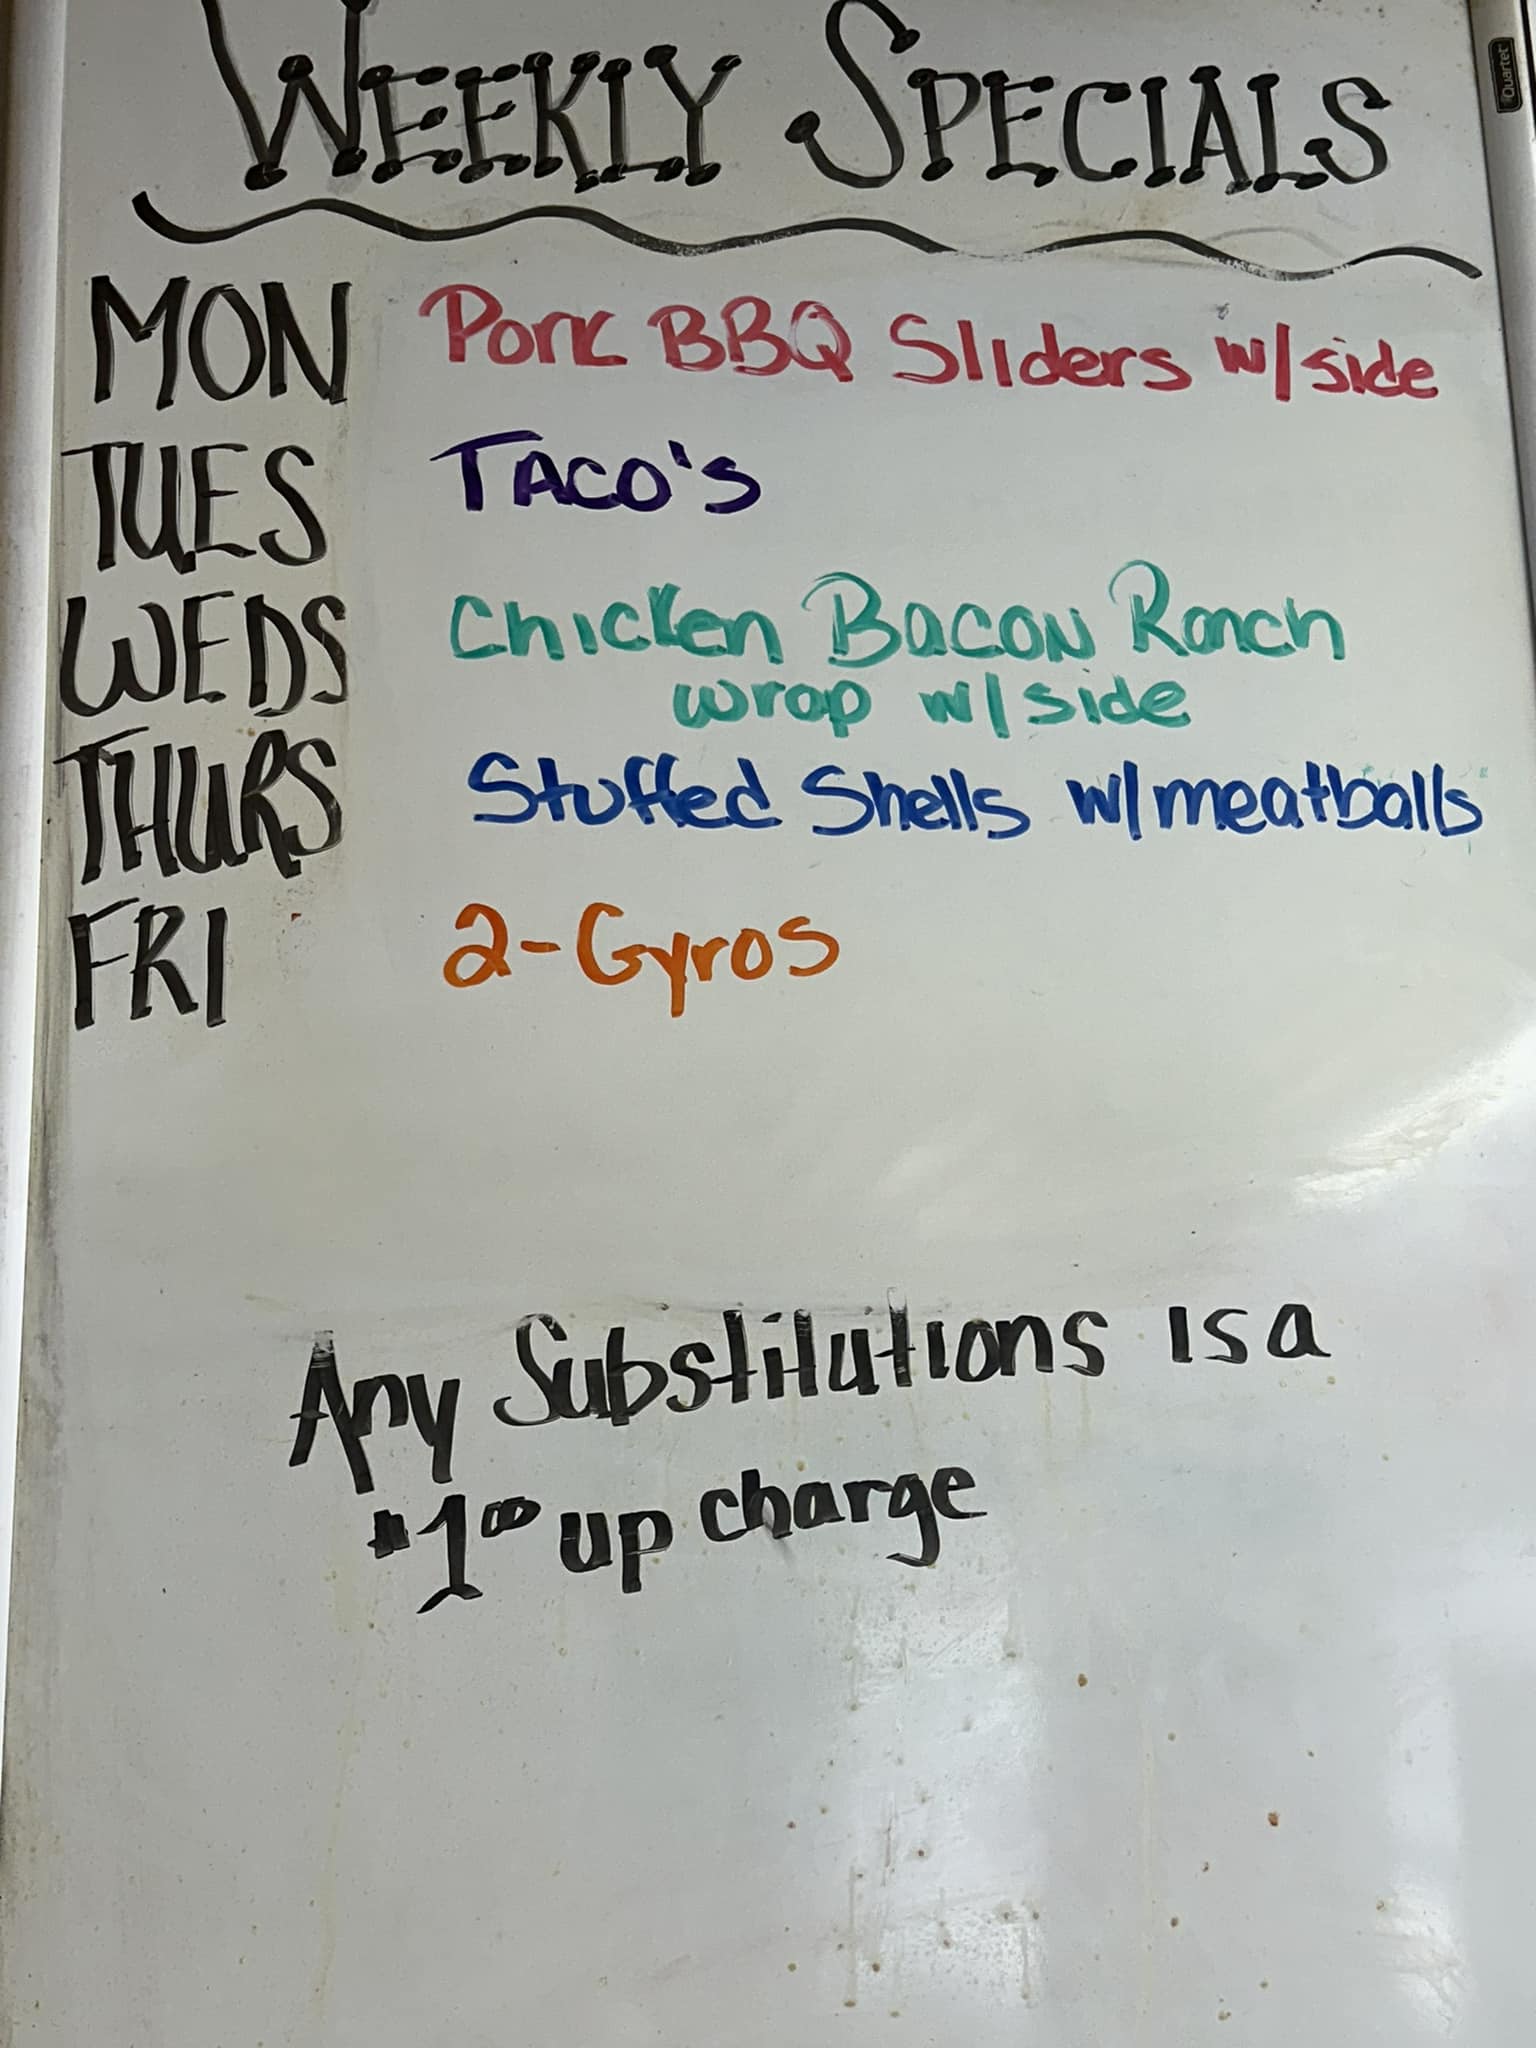 WEEKLY SPECIALS
Quartet
MON Pork BBQ Sliders w/side
TUES TACO's
WEDS Chicken Bacon Ranch
wrap w/side
THURS Stuffed Shells w/meatballs
FRI 2-Gyros
Any Substitutions is a
$1.00 up charge